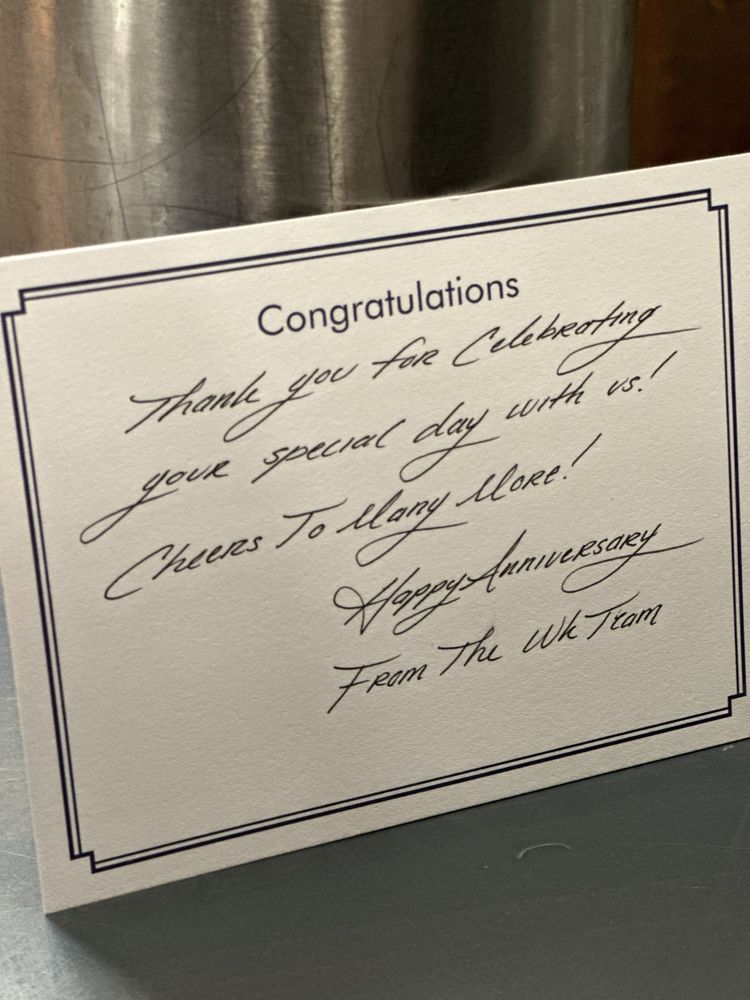 Congratulations
Thank you for Celebrating
your special day with us!
Cheers To Many More!
Happy Anniversary
From The Wk Team